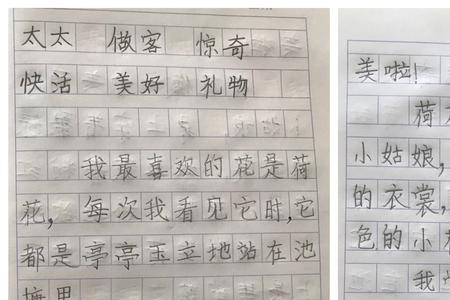 太太 做客 惊奇
快活 美好 礼物
我最喜欢的花是荷
花，每次我看见它时，它
都是亭亭玉立地站在池
塘里
美啦！
荷
小姑娘，
的衣裳，
色的小
我